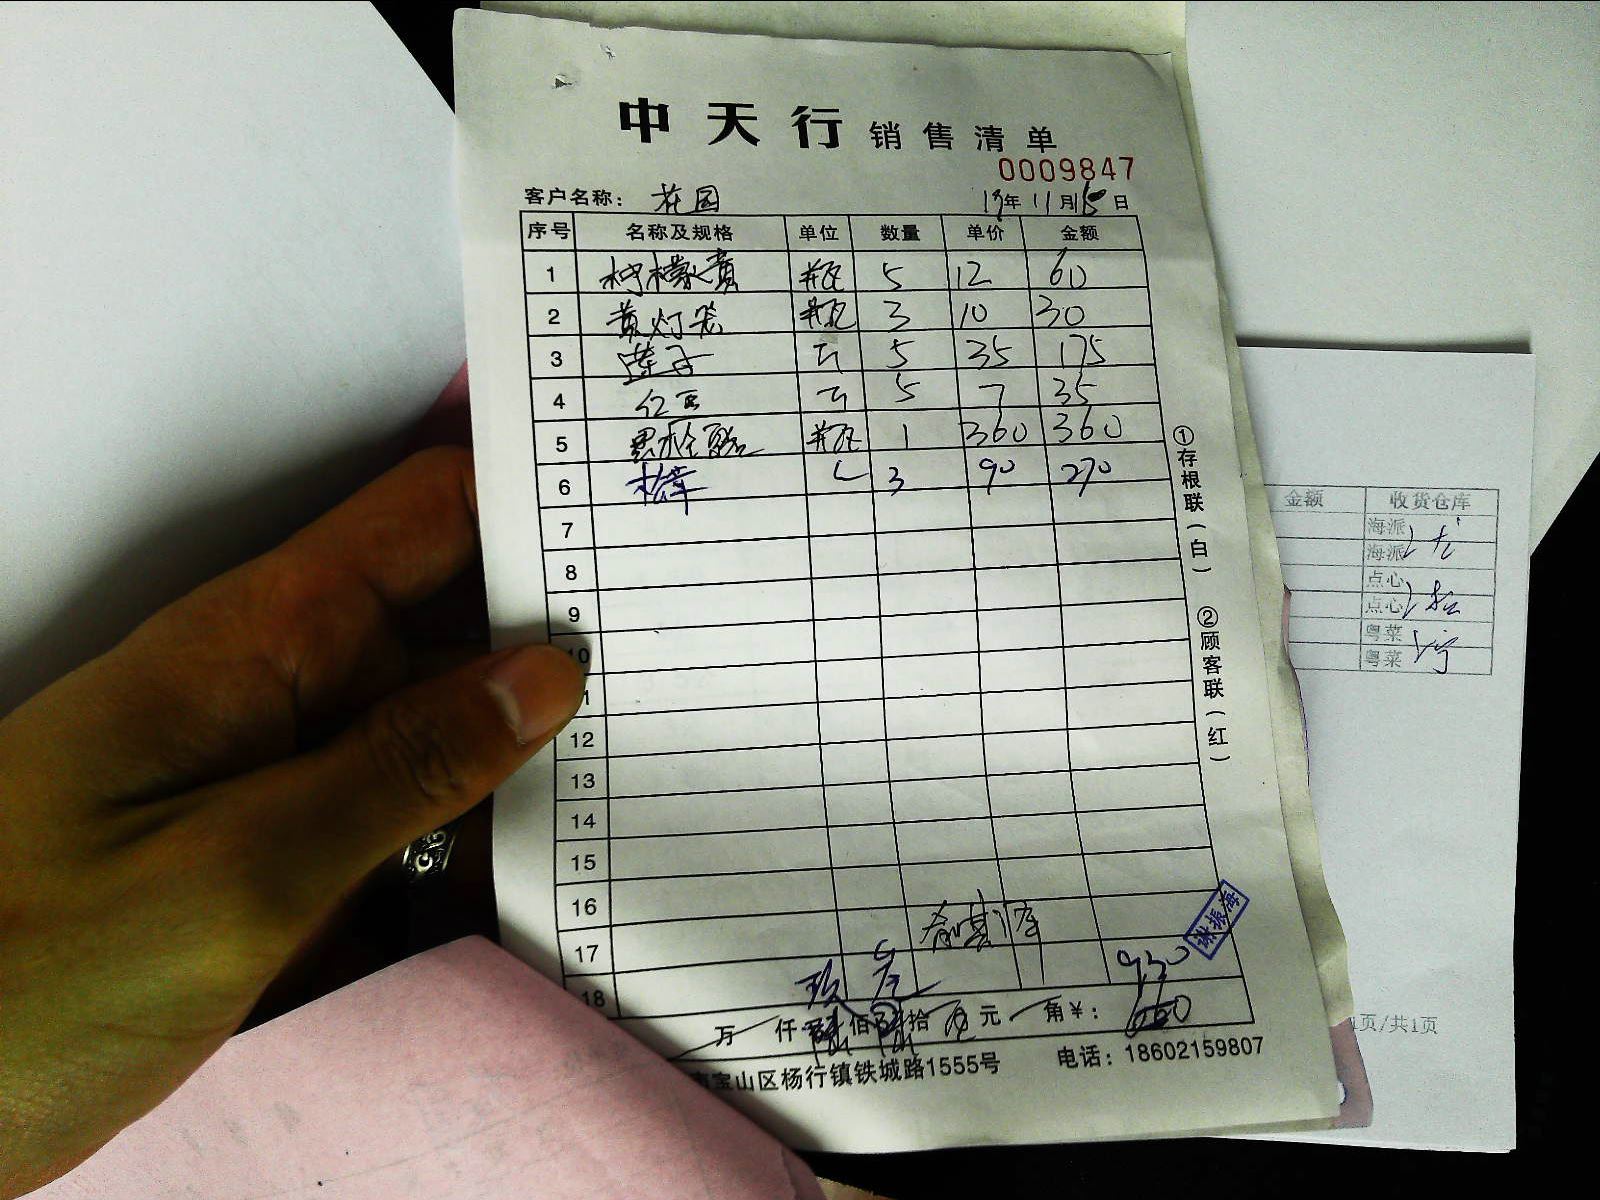 中天行 销售清单
0009847
客户名称： 花园 年 11月15日
序号 名称及规格 单位 数量 单价 金额
1 柠檬黄 瓶 5 12 60
2 黄灯笼 瓶 3 10 30
3 莲子 斤 5 35 175
4 红豆 斤 5 7 35
5 黑松露酱 瓶 1 360 360
6 3 90 270
7
8
9
10
1
12
13
14
15
16
17 930
18 玖
万 仟 陆 佰 陆 拾 元 角 ¥： 660
宝山区杨行镇铁城路1555号 电话：18602159807
①存根联（白） ②顾客联（红）
谢振海
金额 收货仓库
海派
海派
点心
点心
粤菜
粤菜
1页/共1页